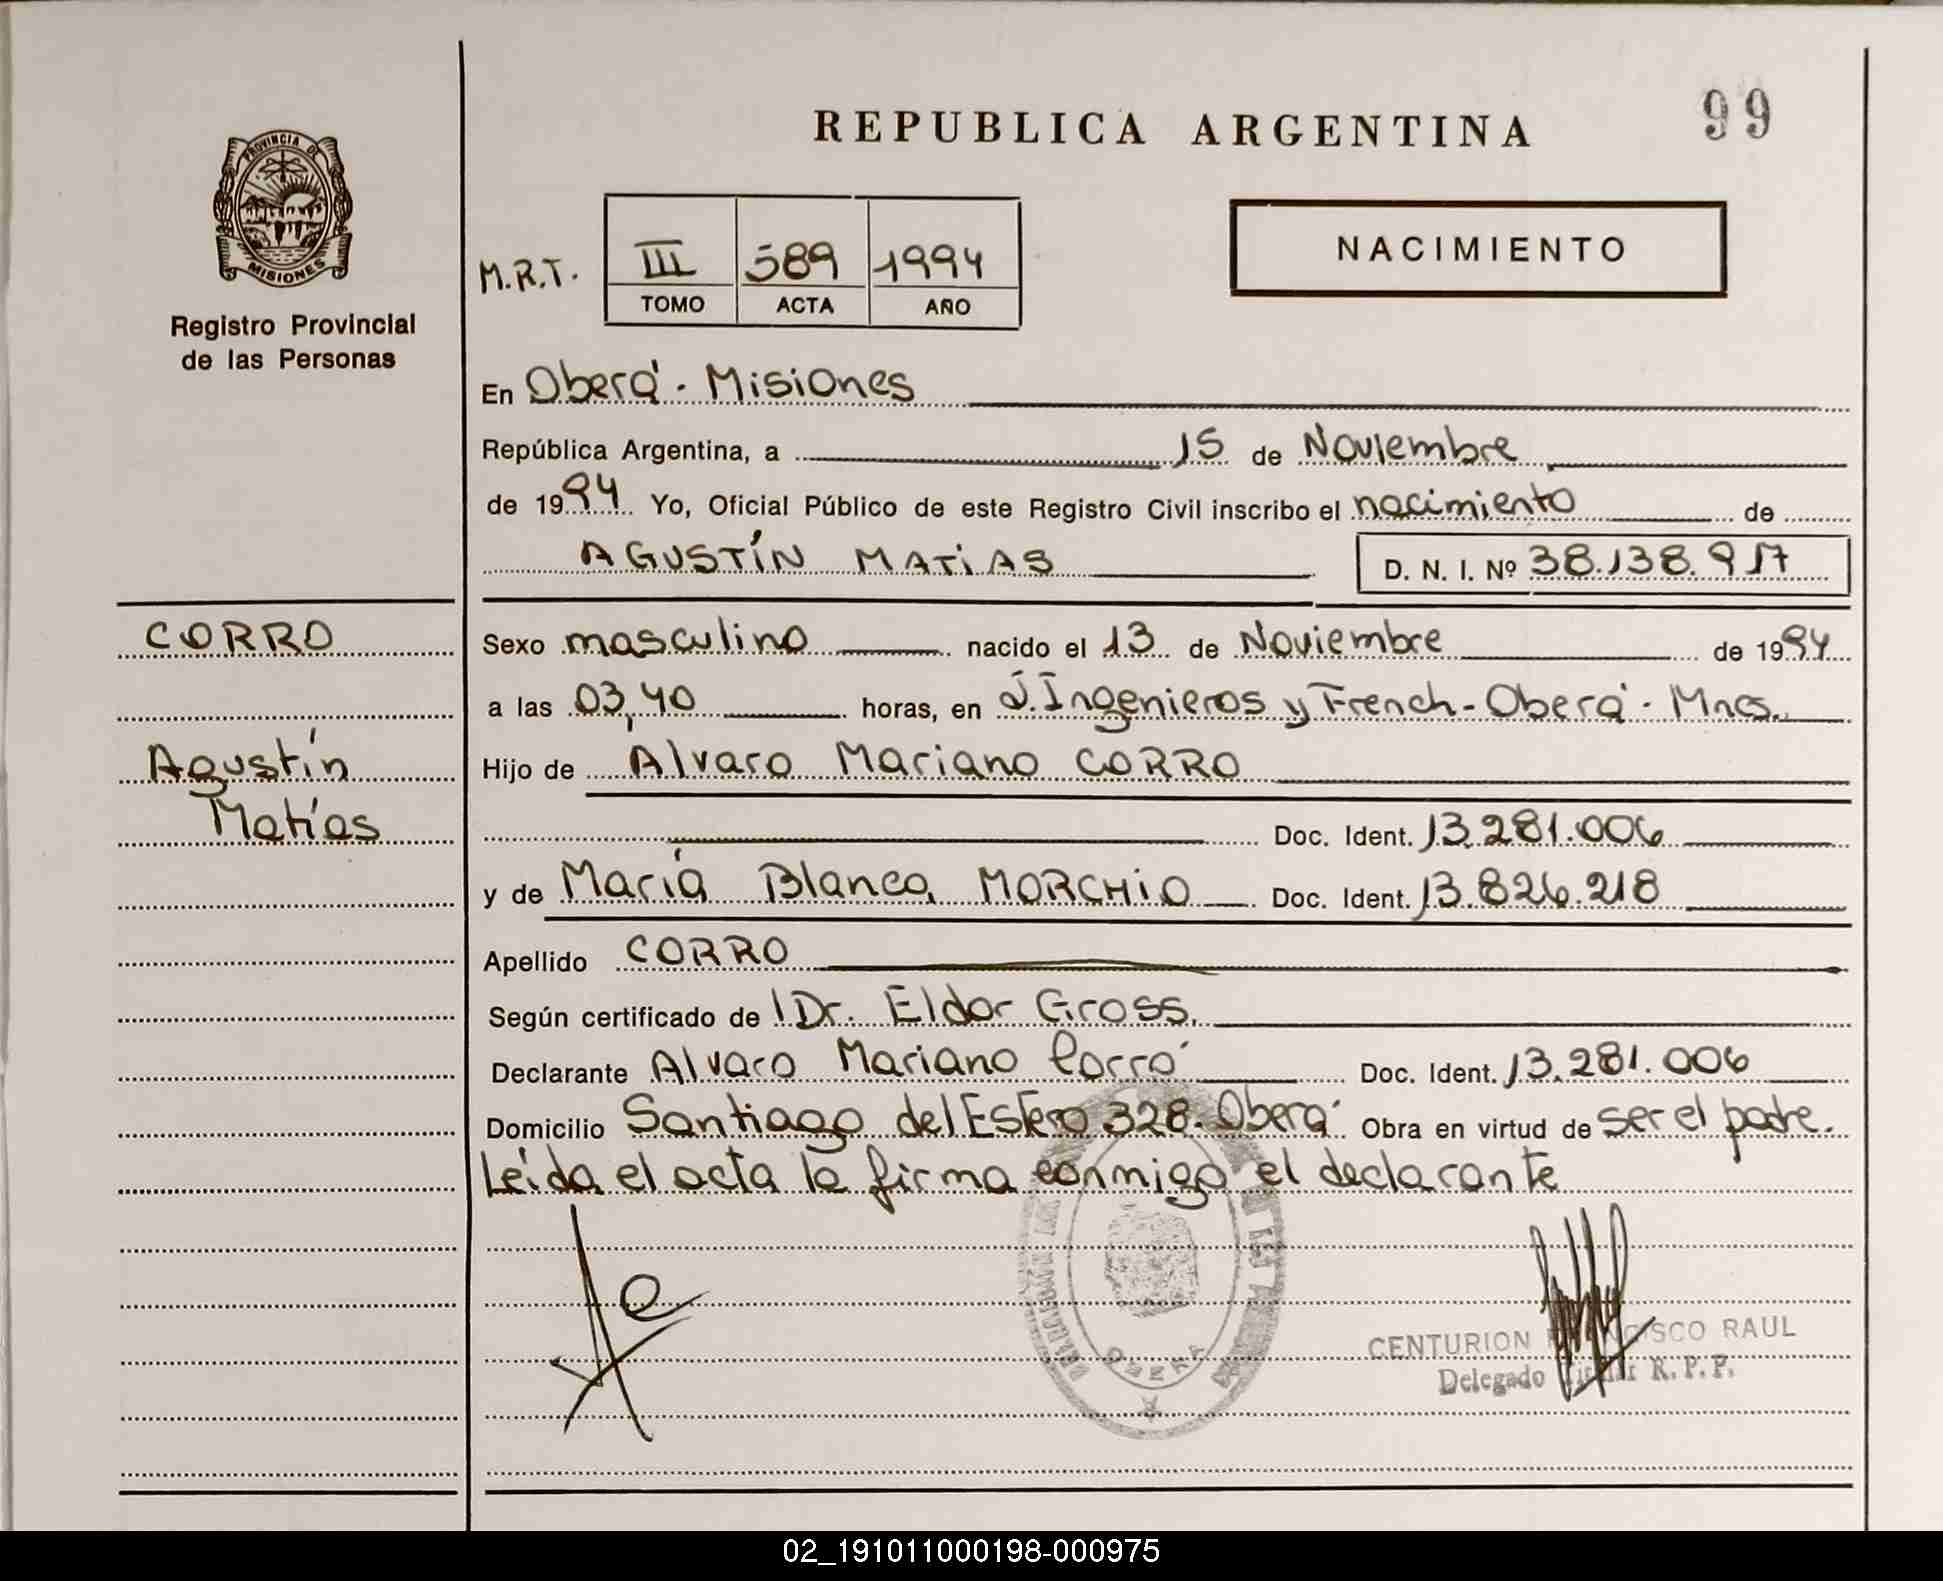 REPUBLICA ARGENTINA
99
PROVINCIA DE
MISIONES
Registro Provincial
de las Personas
M.R.T.
III 589 1994
TOMO ACTA AÑO
NACIMIENTO
En Oberá - Misiones
República Argentina, a 15 de Noviembre
de 1994 Yo, Oficial Público de este Registro Civil inscribo el nacimiento de
AGUSTÍN MATIAS D. N. I. Nº 38.138.917
CORRO
Agustín
Matías
Sexo masculino nacido el 13 de Noviembre de 1994
a las 03,40 horas, en J. Ingenieros y French - Oberá - Mnes.
Hijo de Alvaro Mariano CORRO
Doc. Ident. 13.281.006
y de María Blanca MORCHIO Doc. Ident. 13.826.218
Apellido CORRO
Según certificado de l Dr. Eldor Gross.
Declarante Alvaro Mariano Corro Doc. Ident. 13.281.006
Domicilio Santiago del Estero 328 - Oberá Obra en virtud de ser el padre.
Leída el acta la firma conmigo el declarante
OBERA
CENTURION FRANCISCO RAUL
Delegado Titular R.P.P.
02_191011000198-000975